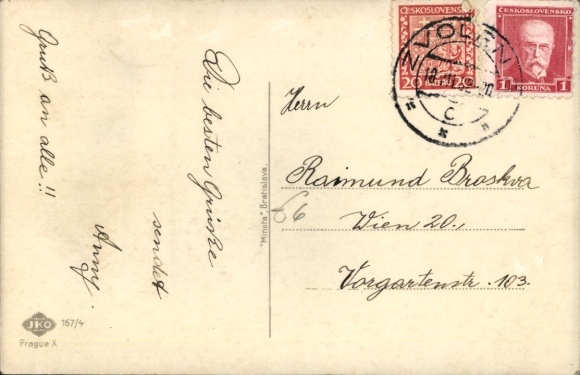 Gruß an alle!!
Die besten Grüße
sendet
Anny.
ČESKOSLOVENSKO
20 20
ČESKOSLOVENSKO
1 1
KORUNA
ZVOLEN
C
Herrn
Raimund Broskva
Wien 20.,
Vorgartenstr. 103.
"Minuta" Bratislava.
66
JKO
167/4
Prague X